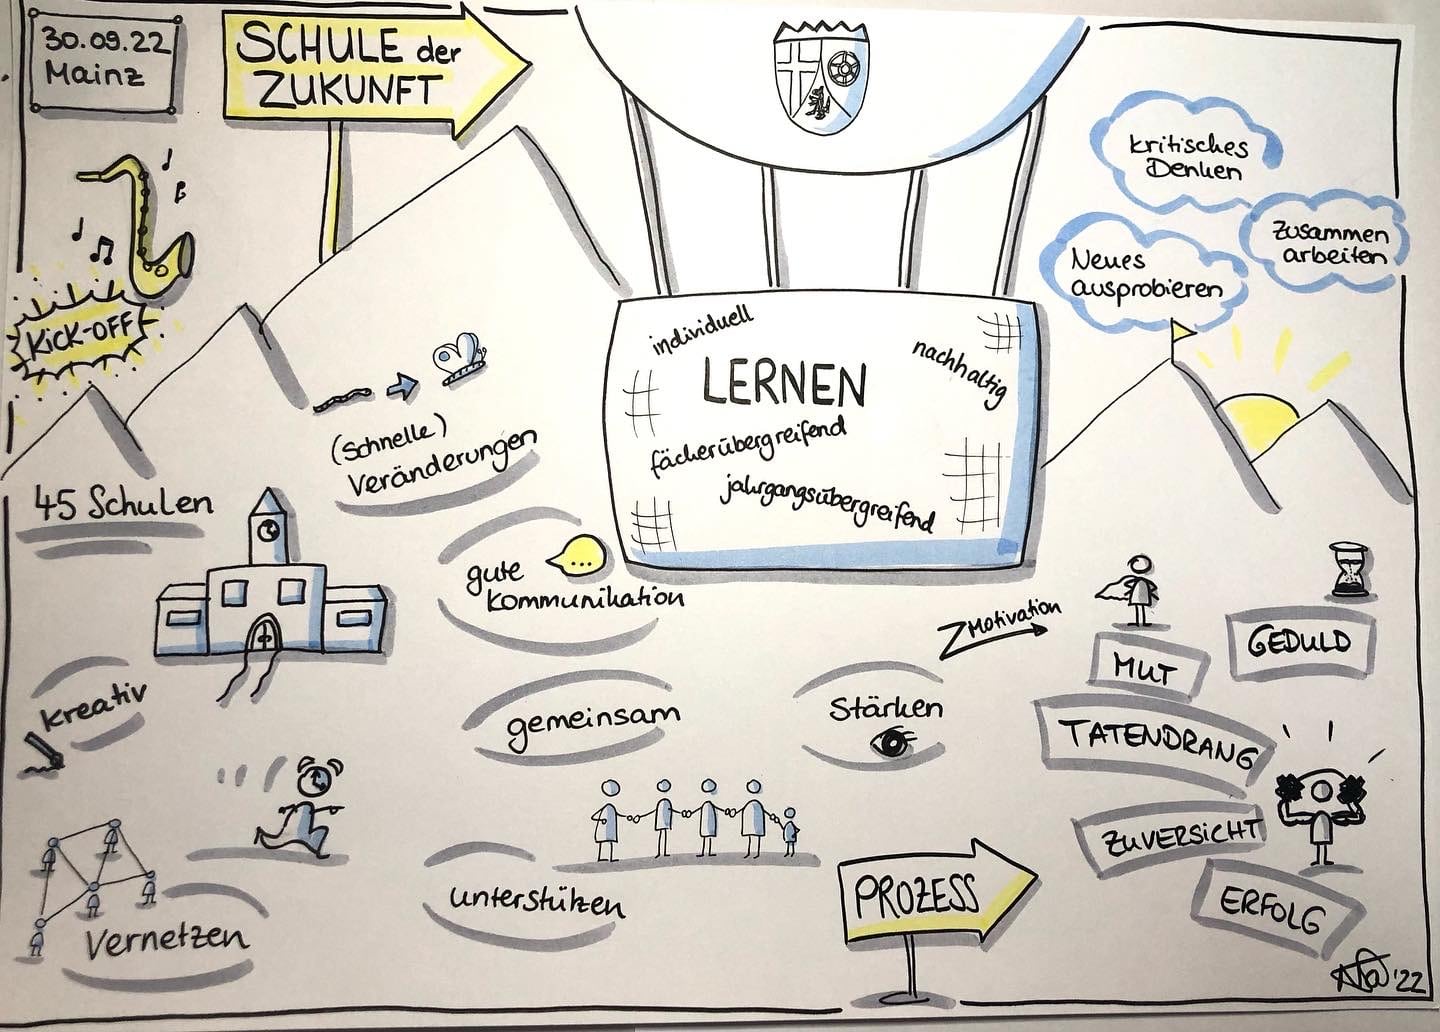 30.09.22
Mainz
SCHULE der
ZUKUNFT
KICK-OFF
kritisches
Denken
Zusammen
arbeiten
Neues
ausprobieren
individuell
nachhaltig
LERNEN
fächerübergreifend
jahrgangsübergreifend
(Schnelle)
Veränderungen
45 Schulen
gute
Kommunikation
Motivation
MUT
GEDULD
kreativ
gemeinsam
Stärken
TATENDRANG
ZUVERSICHT
unterstützen
PROZESS
ERFOLG
Vernetzen
'22